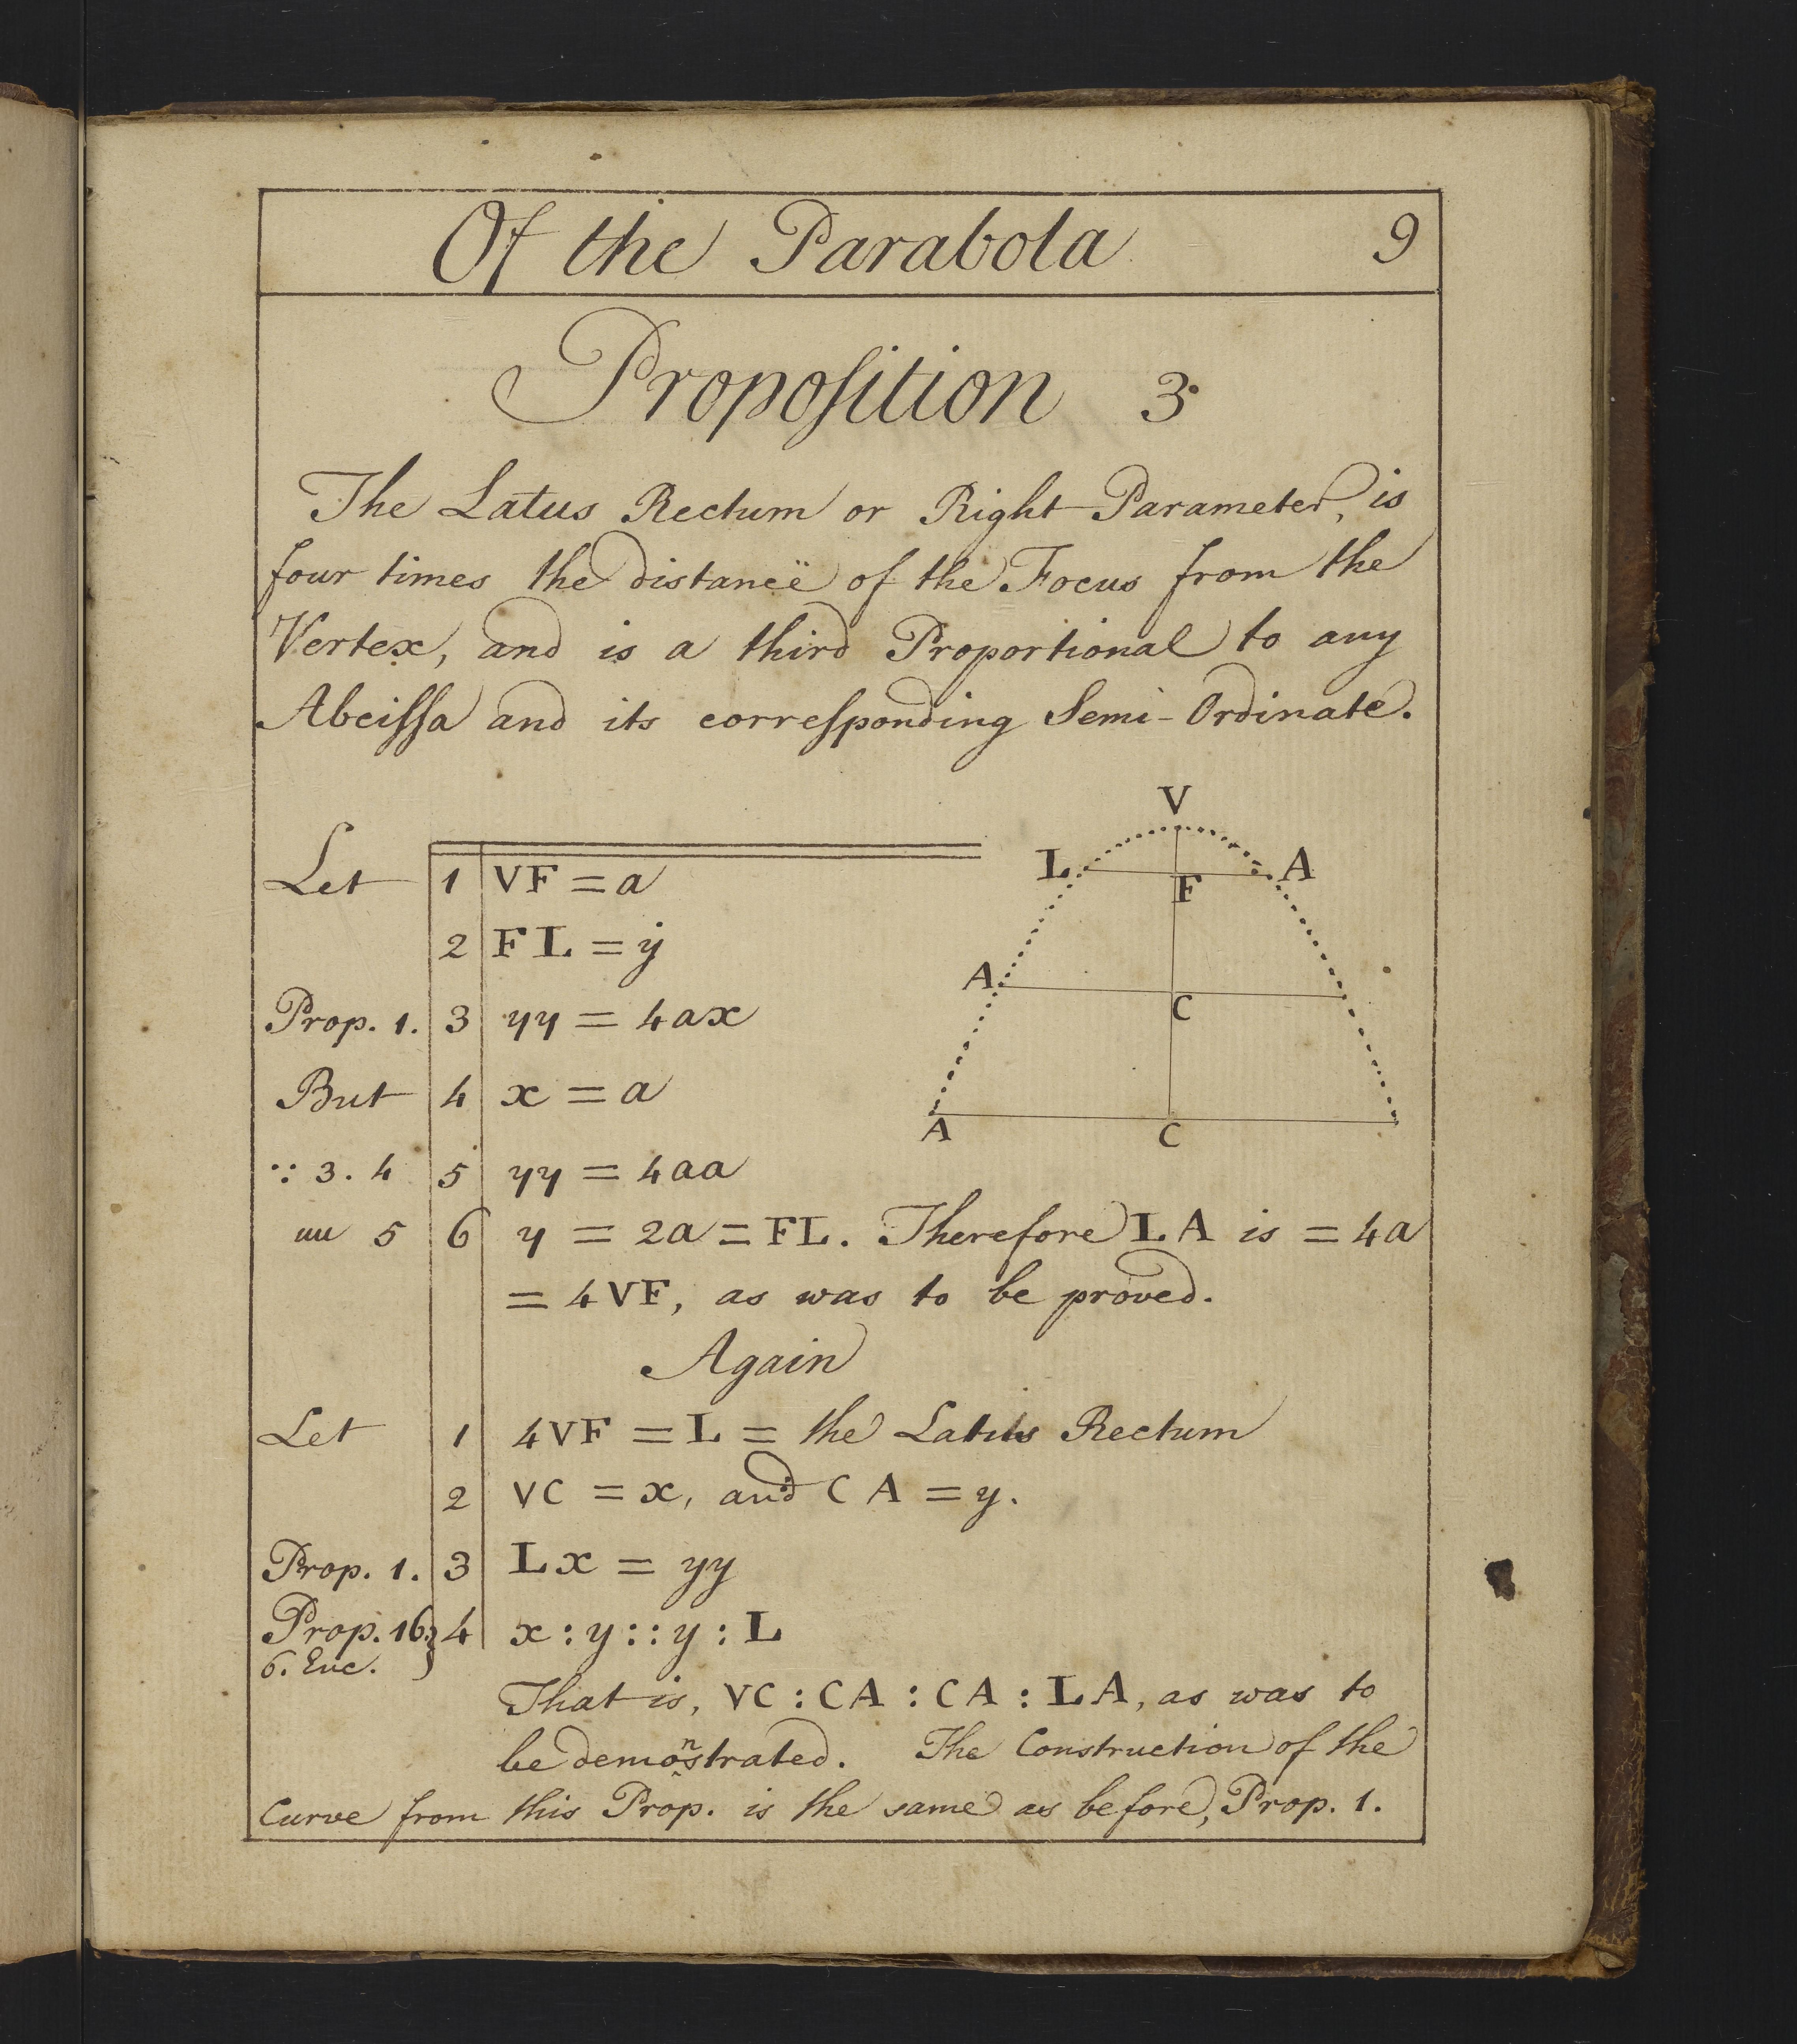 Of the Parabola 9
Propoſition 3.
The Latus Rectum or Right Parameter, is
four times the distance of the Focus from the
Vertex, and is a third Proportional to any
Abciſſa and its correſponding Semi-Ordinate.
V
L A
F
A C
A C
Let 1 VF = a
2 FL = y
Prop. 1. 3 yy = 4ax
But 4 x = a
∵ 3. 4 5 yy = 4aa
5 6 y = 2a = FL. Therefore LA is = 4a
= 4VF, as was to be proved.
Again
Let 1 4VF = L = the Latus Rectum
2 VC = x, and CA = y.
Prop. 1. 3 Lx = yy
Prop. 16. } 4 x : y :: y : L
6. Euc.
That is, VC : CA : CA : LA, as was to
be demonstrated. The Construction of the
Curve from this Prop. is the same as before, Prop. 1.